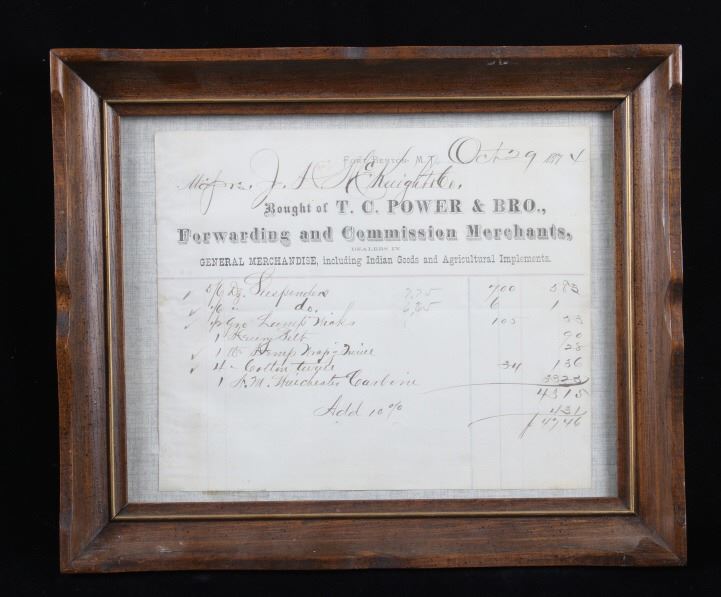 Fort Benton M.T. Oct 29 1874
Mess rs. J. H. McKnight & Co.
Bought of T. C. POWER & BRO.,
Forwarding and Commission Merchants,
DEALERS IN
GENERAL MERCHANDISE, including Indian Goods and Agricultural Implements.
5/6 Dz. Suspenders 7.00 583
1/6 " do. 6 1
1/2 Gro Lamp Wicks 105 53
1 90
1 Hemp Twine 28
4 " Cotton twine 34 136
1 H. M. Winchester Carbine 3323
4315
Add 10% 431
$ 4746